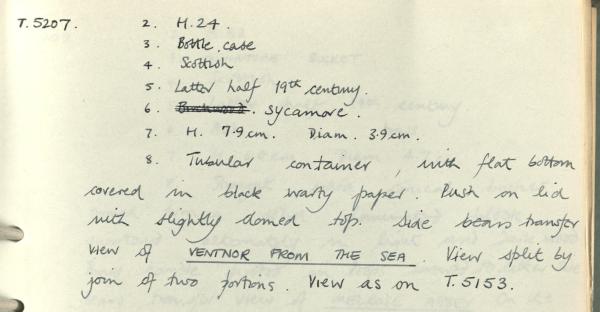 T.5207. 2. H.24.
3. Bottle case
4. Scottish
5. Latter half 19th century.
6. Birchwood. Sycamore.
7. H. 7.9cm. Diam. 3.9cm.
8. Tubular container, with flat bottom
covered in black warty paper. Push on lid
with slightly domed top. Side bears transfer
view of VENTNOR FROM THE SEA. View split by
join of two portions. View as on T.5153.